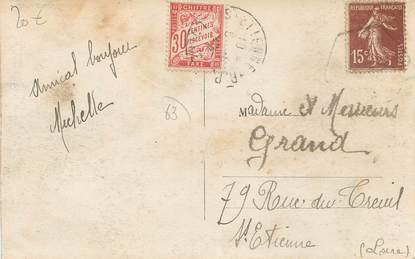 20€
Amical bonjour
Michelle
63
CHIFFRE
30
CENTIMES
À PERCEVOIR
TAXE
REPUBLIQUE FRANÇAISE
15c
POSTES
Madame et Messieurs
Grand
79 Rue du Creuil
St Etienne
(Loire)